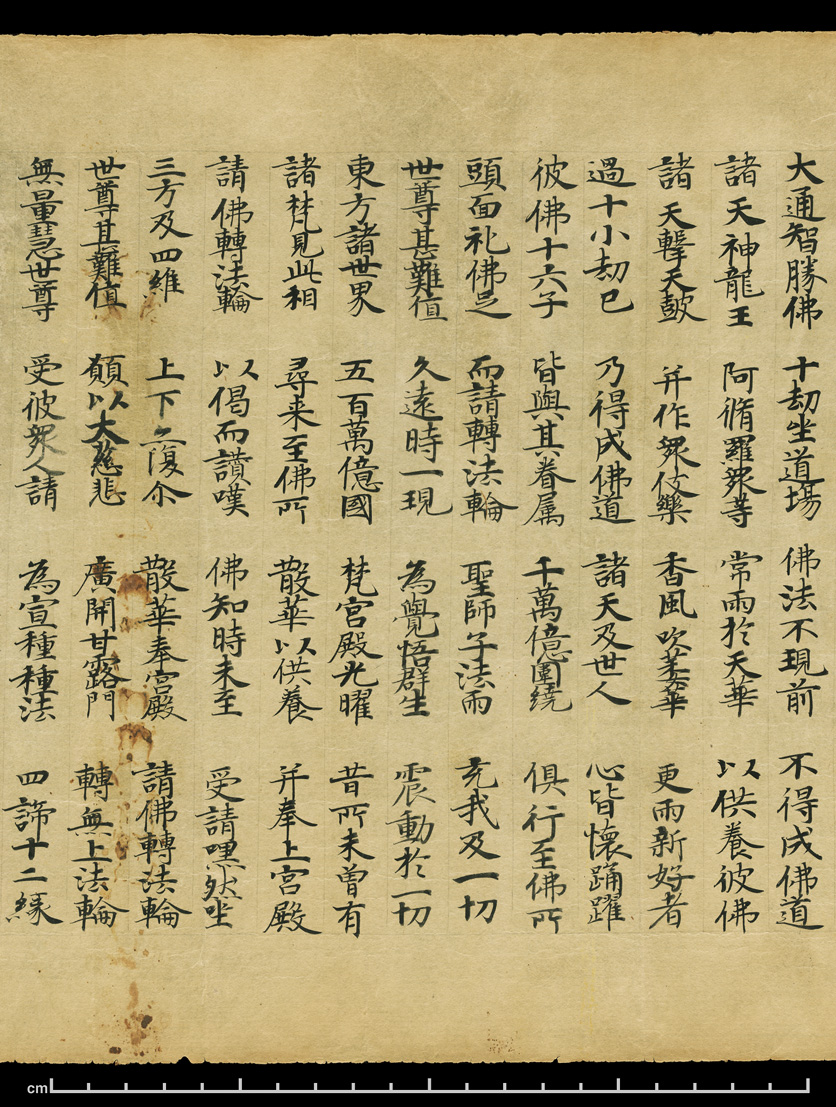 大通智勝佛 十劫坐道場 佛法不現前 不得成佛道
諸天神龍王 阿脩羅眾等 常雨於天華 以供養彼佛
諸天擊天鼓 并作眾伎樂 香風吹萎華 更雨新好者
過十小劫已 乃得成佛道 諸天及世人 心皆懷踊躍
彼佛十六子 皆與其眷属 千萬億圍繞 俱行至佛所
頭面礼佛足 而請轉法輪 聖師子法雨 充我及一切
世尊甚難值 久遠時一現 為覺悟群生 震動於一切
東方諸世界 五百萬億國 梵宮殿光曜 昔所未曾有
諸梵見此相 尋来至佛所 散華以供養 并奉上宮殿
請佛轉法輪 以偈而讃嘆 佛知時未至 受請嘿然坐
三方及四維 上下亦復尒 散華奉宮殿 請佛轉法輪
世尊甚難值 願以大慈悲 廣開甘露門 轉無上法輪
無量慧世尊 受彼眾人請 為宣種種法 四諦十二緣
cm